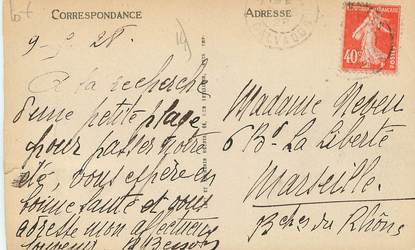 CORRESPONDANCE
ADRESSE
40c
POSTES
A la recherche
d'une petite plage
pour passer notre
été, vous espère en
bonne santé et vous
adresse mon affectueux
souvenir
Madame Neveu
6 Bd La Liberté
Marseille
Bches du Rhône